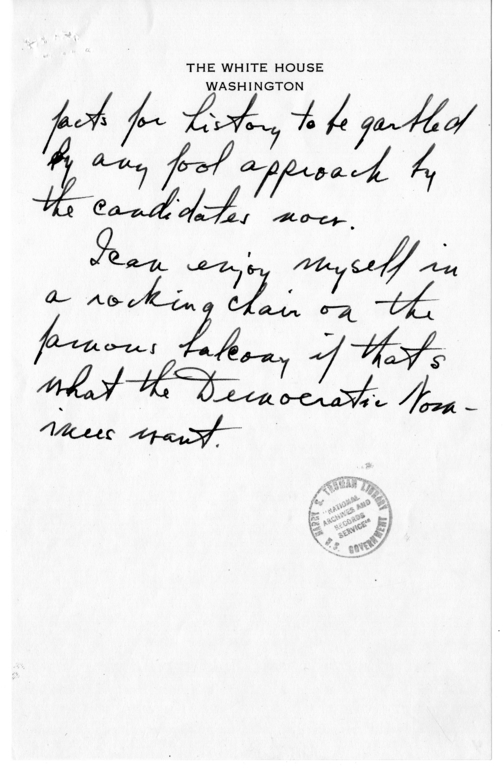 THE WHITE HOUSE
WASHINGTON
facts for history to be garbled
by any fool approach by
the candidates now.
I can enjoy myself in
a rocking chair on the
famous balcony if that's
what the Democratic Nom-
inees want.
HARRY S. TRUMAN LIBRARY
"NATIONAL
ARCHIVES AND
RECORDS
SERVICE"
U.S. GOVERNMENT